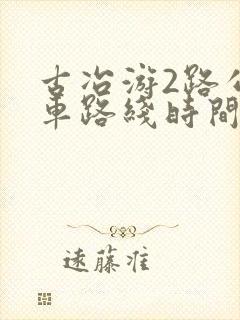 古冶游2路公
車路綫時間
遠藤准